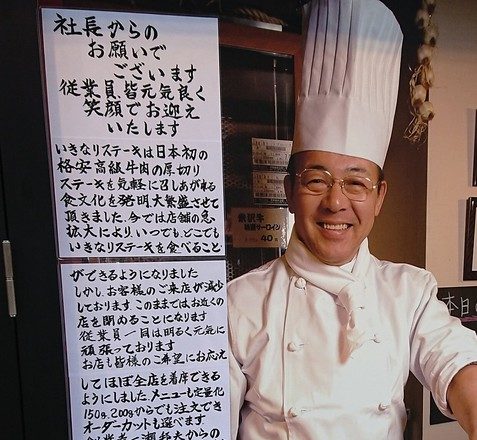 社長からの
お願いで
ございます
従業員皆元気良く
笑顔でお迎え
いたします
いきなりステーキは日本初の
格安高級牛肉の厚切り
ステーキを気軽に召しあがれる
食文化を発明大繁盛させて
頂きました。今では店舗の急
拡大により、いつでも、どこでも
いきなりステーキを食べること
ができるようになりました
しかし、お客様のご来店が減少
しております このままではお近くの
店を閉めることになります
従業員一同は明るく元気に
頑張っております
お店も皆様のご希望にお応え
してほぼ全店を着席できる
ようにしました。メニューも定量化
150g、200gからでも注文でき
オーダーカットも選べます
米沢牛
40円
本日